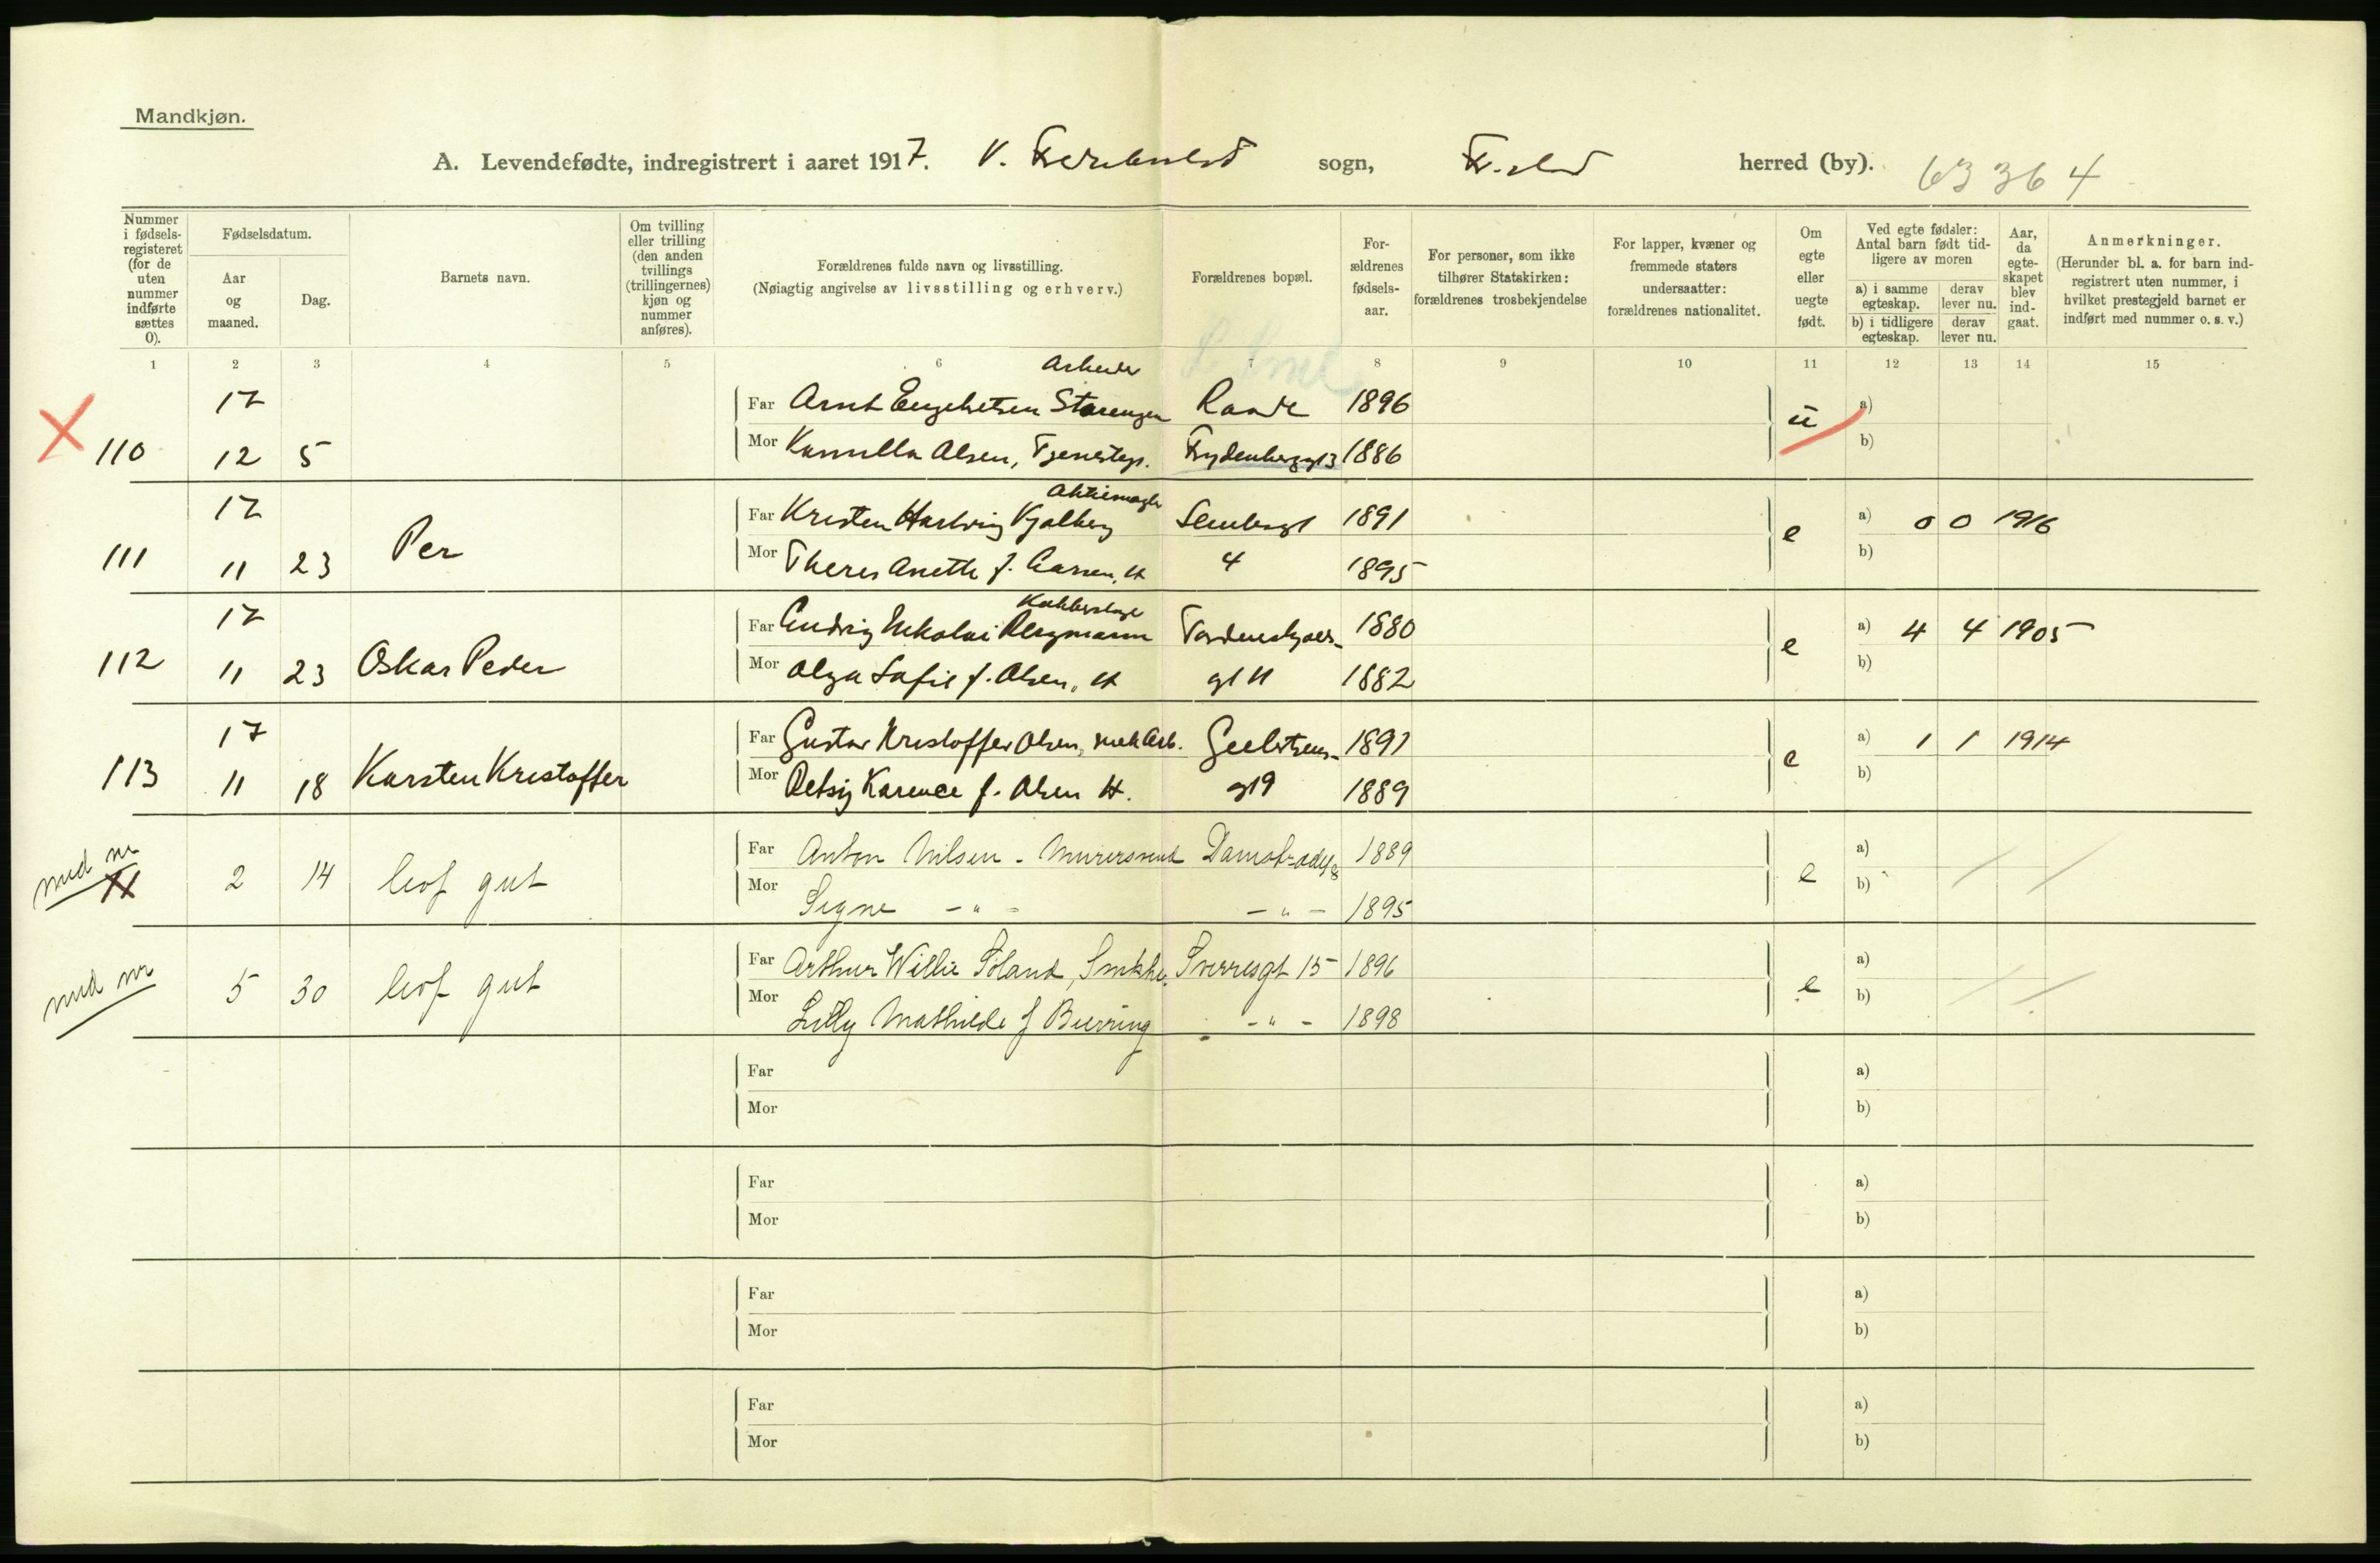 Mandkjøn.
A. Levendefødte, indregistrert i aaret 1917. V. sogn, herred (by). 63 364
Nummer i fødsels-registeret (for de uten nummer indførte sættes 0).
Fødselsdatum.
Aar og maaned.
Dag.
Barnets navn.
Om tvilling eller trilling (den anden tvillings (trillingernes) kjøn og nummer anføres).
Forældrenes fulde navn og livsstilling.
(Nøiagtig angivelse av livsstilling og erhverv.)
Forældrenes bopæl.
For-ældrenes fødsels-aar.
For personer, som ikke tilhører Statskirken: forældrenes trosbekjendelse
For lapper, kvæner og fremmede staters undersaatter: forældrenes nationalitet.
Om egte eller uegte født.
Ved egte fødsler: Antal barn født tid-ligere av moren
a) i samme egteskap. derav lever nu.
b) i tidligere egteskap. derav lever nu.
Aar, da egte-skapet blev ind-gaat.
Anmerkninger.
(Herunder bl. a. for barn ind-registrert uten nummer, i hvilket prestegjeld barnet er indført med nummer o. s. v.)
1 2 3 4 5 6 7 8 9 10 11 12 13 14 15
17 Far Arnt Raade 1896 u a)
110 12 5 Mor Kamilla Olsen, Tjenestep. 1886 b)
17 Far Kristen Hartvig 1891 e a) 0 0 1916
111 11 23 Per Mor Anette f. 4 1895 b)
17 Far Nikolai Bergmann Tordenskjolds- 1880 e a) 4 4 1905
112 11 23 Oskar Peder Mor Olga Sofie f. Olsen, H gt 11 1882 b)
17 Far Gustav Kristoffer Olsen, mek Arb. 1891 e a) 1 1 1914
113 11 18 Karsten Kristoffer Mor Betsy f. Olsen H. gt 9 1889 b)
Far Anton Nilsen - Murersvend 1889 a)
uud nr 2 14 levf gut Mor Signe - " - - " - 1895 e b)
Far Arthur Willie Söland, Sverresgt 15 1896 a)
uud nr 5 30 levf gut Mor Lilly Mathilde f - " - 1898 e b)
Far a)
Mor b)
Far a)
Mor b)
Far a)
Mor b)
Far a)
Mor b)